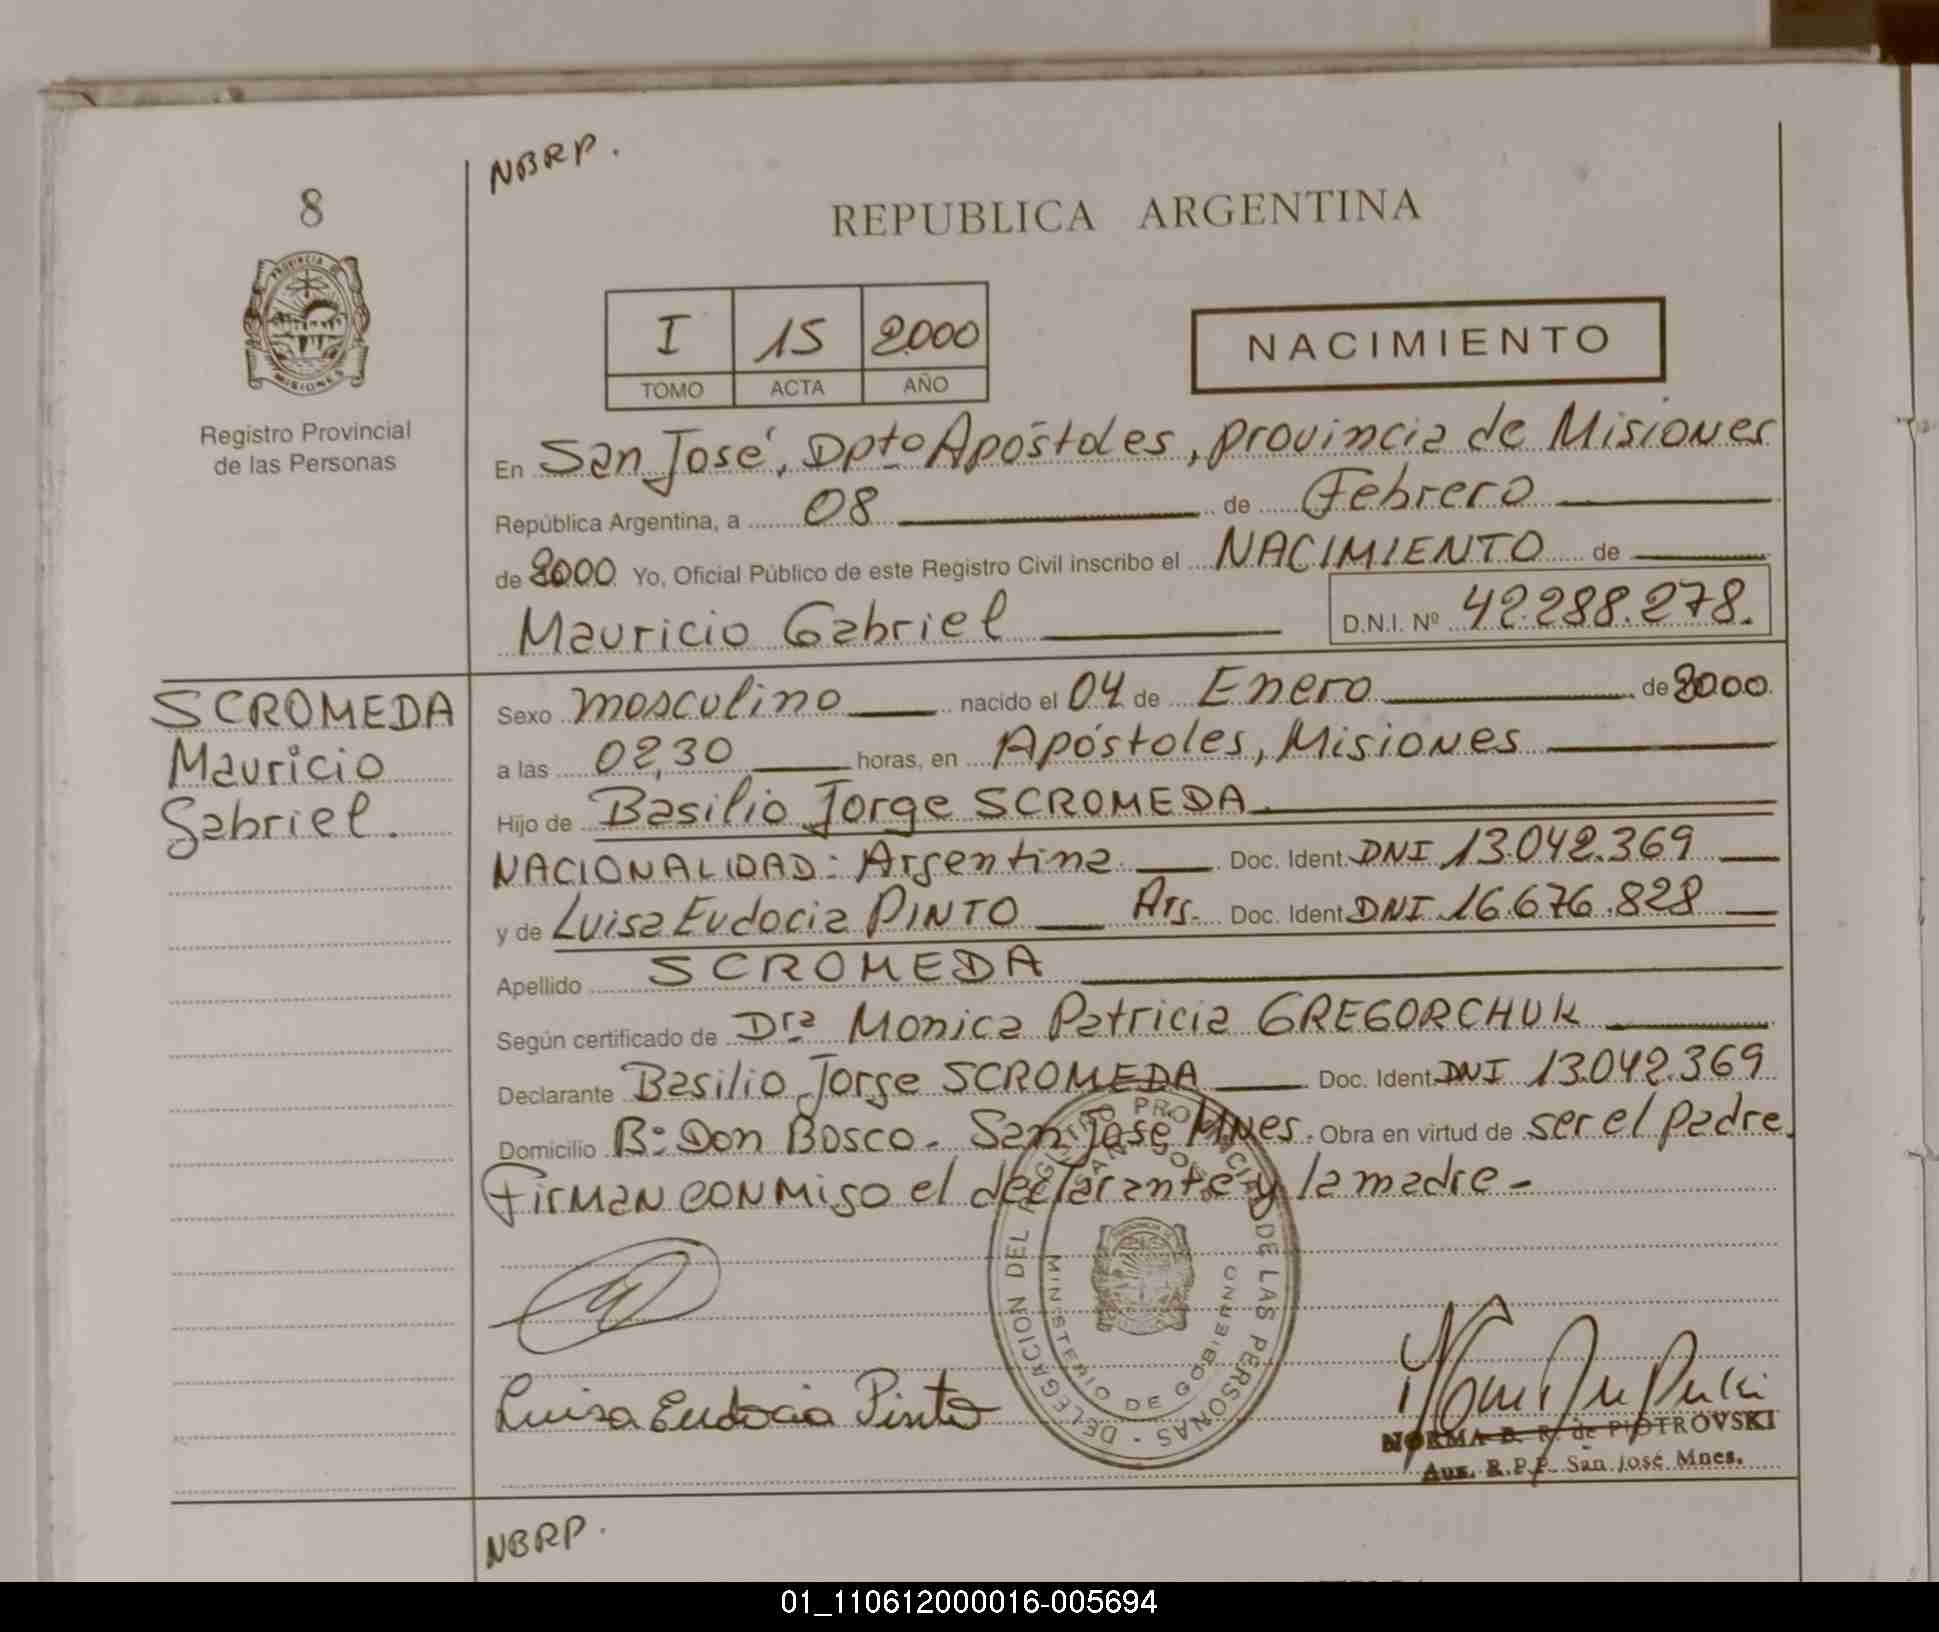 NBRP.
8
REPUBLICA ARGENTINA
PROVINCIA DE
MISIONES
I 15 2000
TOMO ACTA AÑO
NACIMIENTO
Registro Provincial
de las Personas
En San José, Dpto Apóstoles, provincia de Misiones
República Argentina, a 08 de Febrero
de 2000 Yo, Oficial Público de este Registro Civil inscribo el NACIMIENTO de
Mauricio Gabriel D.N.I. Nº 42.288.278.
SCROMEDA
Mauricio
Gabriel.
Sexo masculino nacido el 04 de Enero de 2000
a las 02,30 horas, en Apóstoles, Misiones
Hijo de Basilio Jorge SCROMEDA
NACIONALIDAD: Argentina Doc. Ident. DNI 13.042.369
y de Luisa Eudocia PINTO Arg. Doc. Ident DNI 16.676.828
Apellido SCROMEDA
Según certificado de Dra Monica Patricia GREGORCHUK
Declarante Basilio Jorge SCROMEDA Doc. Ident. DNI 13.042.369
Domicilio Bº Don Bosco - San José Mnes. Obra en virtud de ser el padre.
Firman conmigo el declarante y la madre -
DELEGACION DEL REGISTRO PROVINCIAL DE LAS PERSONAS -
SAN JOSE
MINISTERIO DE GOBIERNO
Luisa Eudocia Pinto
NORMA B. R. de PIOTROVSKI
Aux. R.P.P. San José Mnes.
NBRP.
01_110612000016-005694